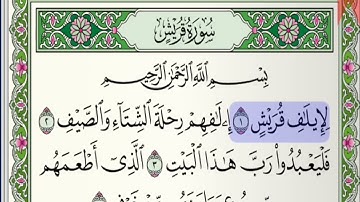 سُورَةُ قُرَيْشٍ
بِسْمِ ٱللَّهِ ٱلرَّحْمَٰنِ ٱلرَّحِيمِ
لِإِيلَٰفِ قُرَيْشٍ ١ إِۦلَٰفِهِمْ رِحْلَةَ ٱلشِّتَآءِ وَٱلصَّيْفِ ٢
فَلْيَعْبُدُوا۟ رَبَّ هَٰذَا ٱلْبَيْتِ ٣ ٱلَّذِىٓ أَطْعَمَهُم